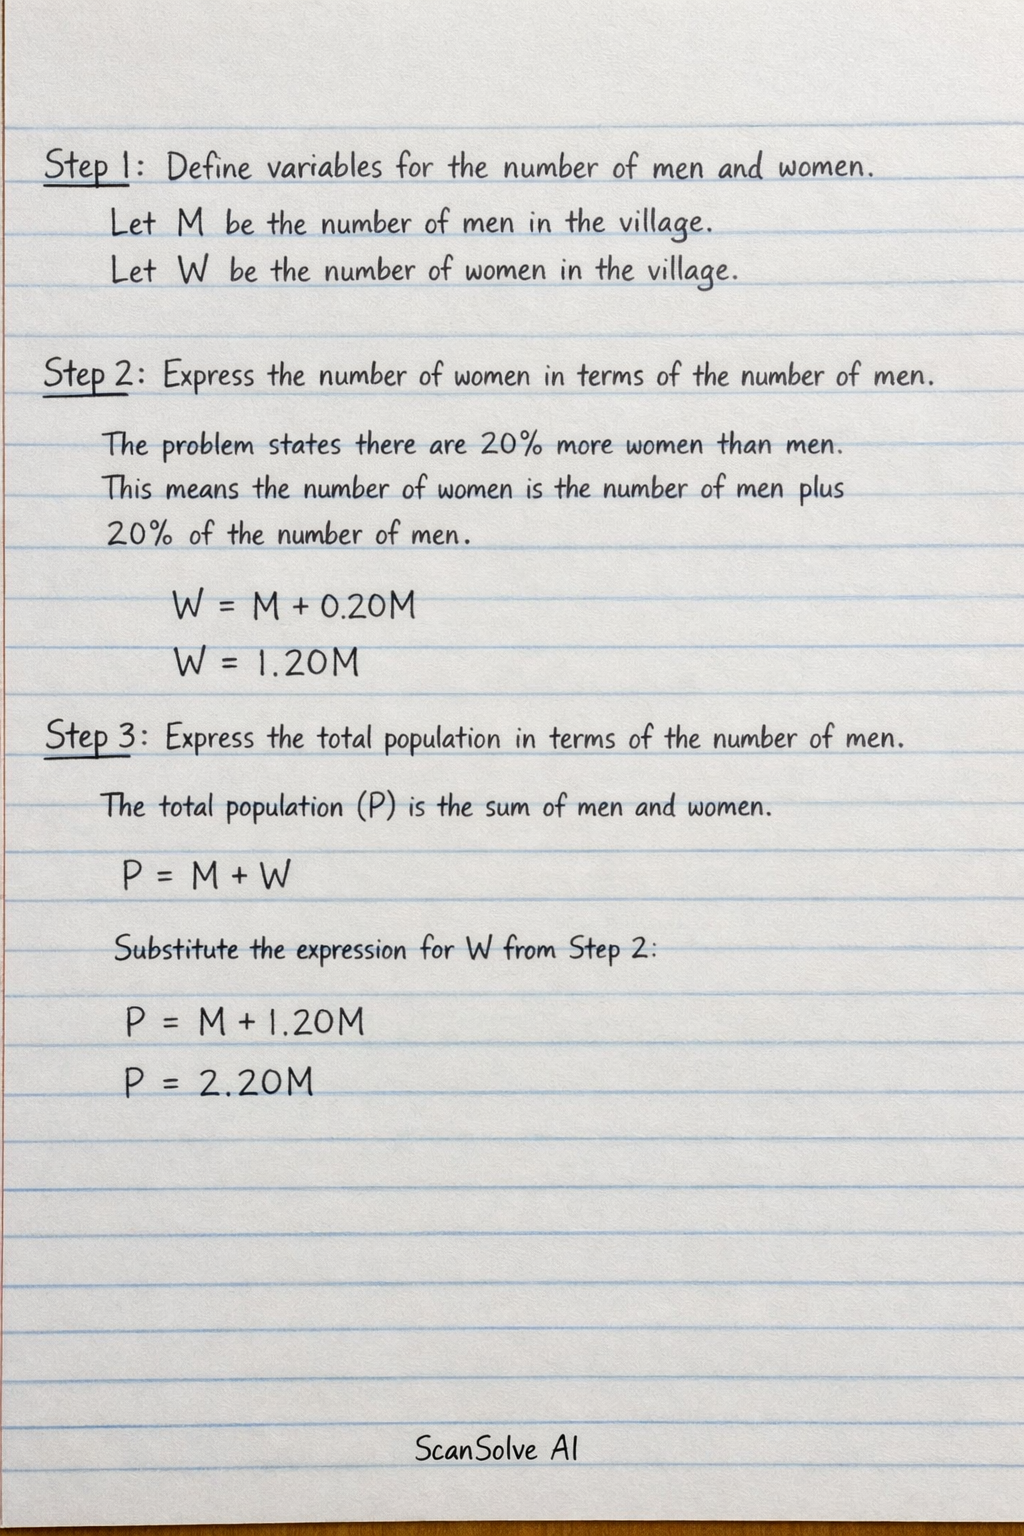 Step 1: Define variables for the number of men and women.
Let M be the number of men in the village.
Let W be the number of women in the village.
Step 2: Express the number of women in terms of the number of men.
The problem states there are 20% more women than men.
This means the number of women is the number of men plus
20% of the number of men.
W = M + 0.20M
W = 1.20M
Step 3: Express the total population in terms of the number of men.
The total population (P) is the sum of men and women.
P = M + W
Substitute the expression for W from Step 2:
P = M + 1.20M
P = 2.20M
ScanSolve AI